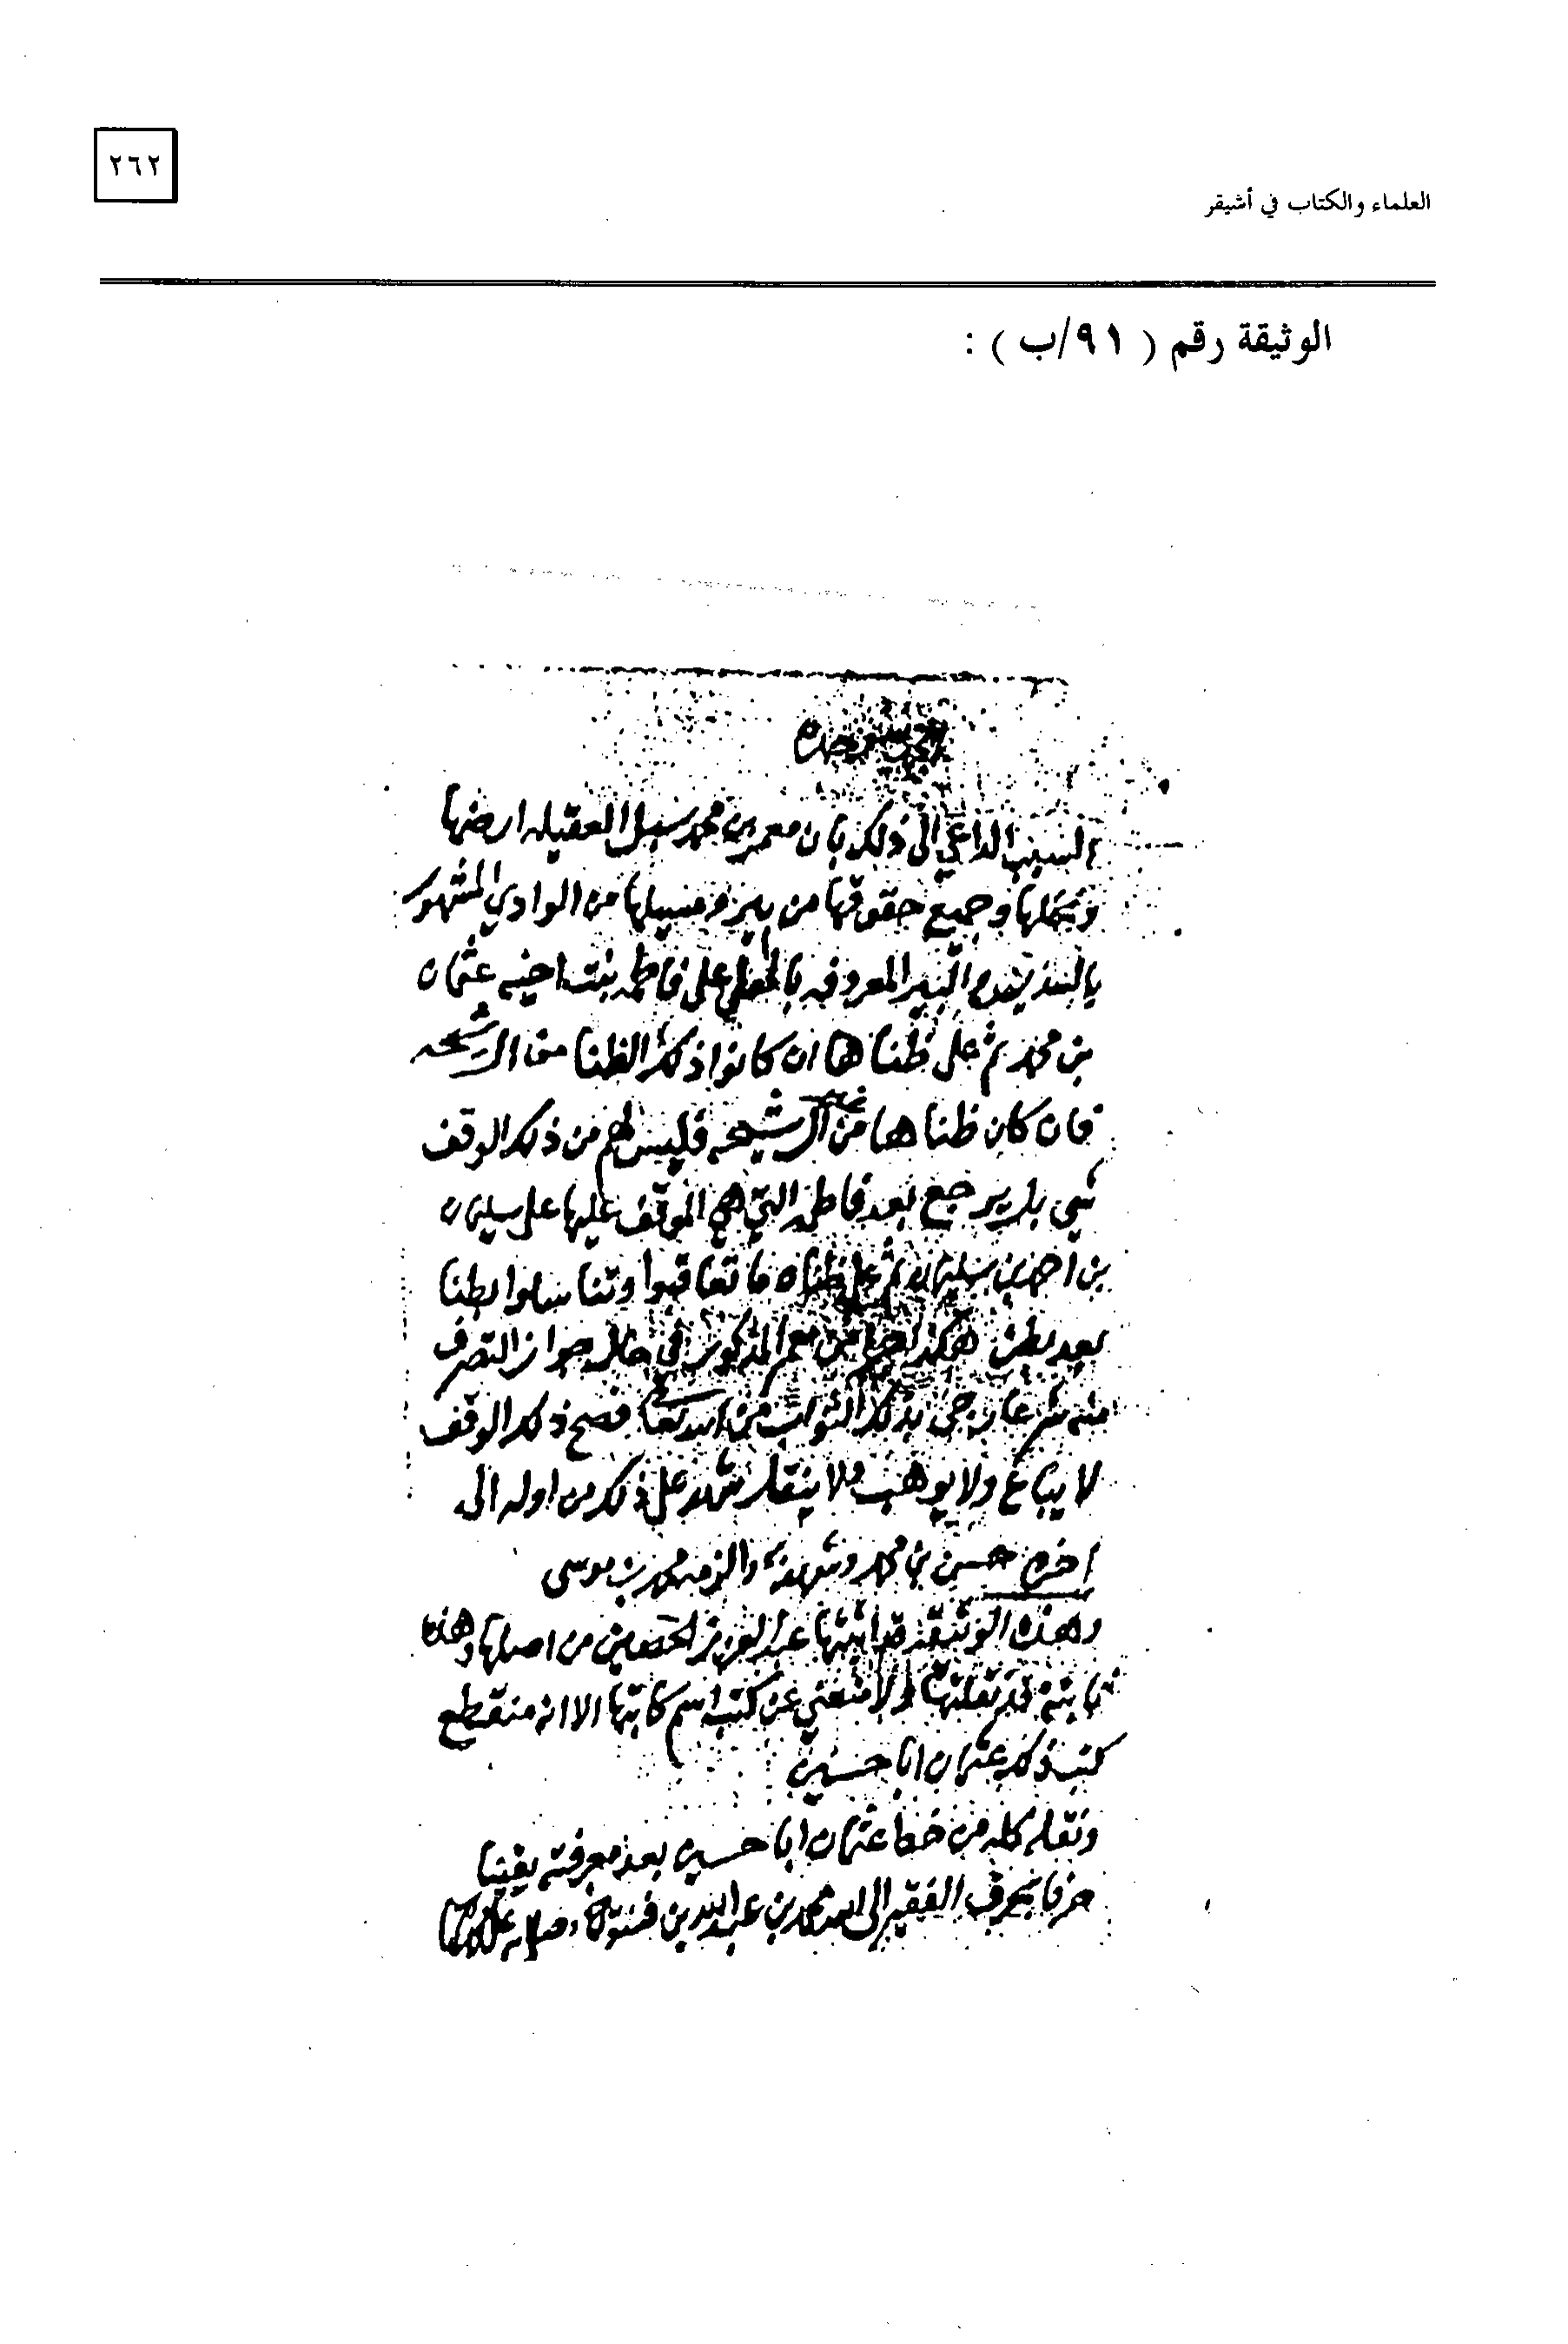 ٢٦٢
العلماء والكتاب في أشيقر
الوثيقة رقم ( ٩١/ب ) :
الحمد لله وحده
السبب الداعي الى ذلك بان معمر بن محمد سبل العقيله ارضها
ونخلها وجميع حقوقها من بير ومسيلها من الوادي المشهور
البير المعروفه على فاطمه بنت اخيه عثمان
بن محمد ثم على ظناها ان كانوا ذلك الظنا من ال شيحه
فان كان ظناها من غير ال شيحه فليس لهم من ذلك الوقف
شي بل يرجع بعد فاطمه التي هي الموقف عليها على سليمان
بن احمد بن سليمان ثم على ظناه ما تعاقبوا وتناسلوا بطنا
بعد بطن هكذا من معمر المذكور في حال جواز التصرف
منه شرعا رجى بذلك الثواب من الله تعا فصح ذلك الوقف
لا يباع ولا يوهب ولا ينقل شهد على ذلك من اوله الى
اخره حسين بن محمد وشهد به والزمه محمد بن موسى
وهذه الوثيقه قد اثبتها عبد العزيز الحصين من اصلها وهذه
ثابته قد نقلتها ولا منعني عن كتب اسم كاتبها الا انه منقطع
كتب ذلك عثمان ابا حسين
ونقله كله من خط عثمان ابا حسين بعد معرفته يقينا
حرفا بحرف الفقير الى الله محمد بن عبد الله بن فنتوخ وصلى الله على محمد